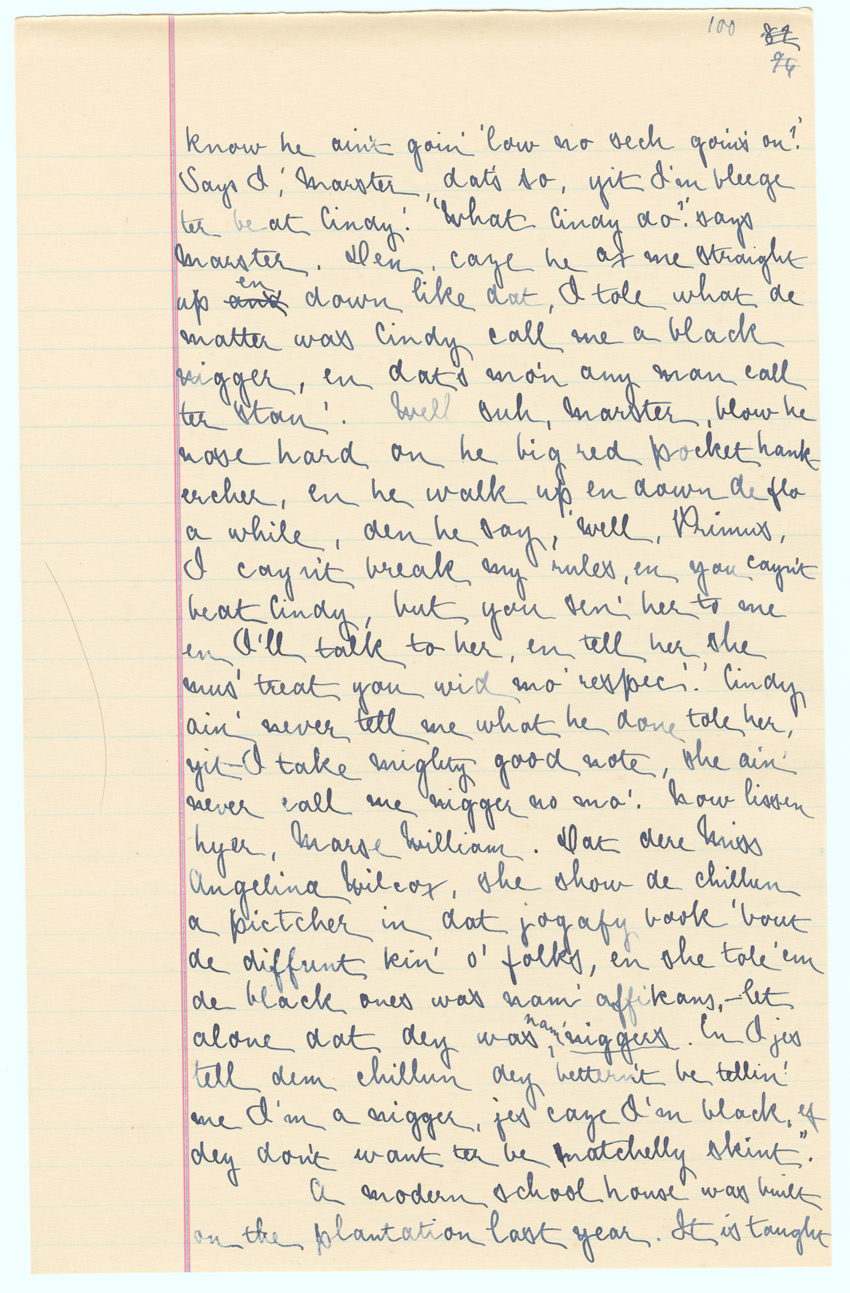 100 89
96
know he ain't goin' 'low no sech goin's on?'
Says I, 'Marster, dat's so, yit I'm bleege
ter beat Cindy.' 'What Cindy do?' says
Marster. Den, caze he ax me straight
up and en down like dat, I tole what de
matter was Cindy call me a black
nigger, en dat's mo'n any man call
ter stan'. Well suh, Marster, blow he
nose hard on he big red pocket hank
ercher, en he walk up en down de flo
a while, den he say, 'Well, Primus,
I cayn't break my rules, en you cayn't
beat Cindy, but you sen' her to me
en I'll talk to her, en tell her she
mus' treat you wid mo' respec'.' Cindy
ain' never tell me what he done tole her,
yit I take mighty good note, she ain'
never call me nigger no mo'. Now lissen
hyer, Marse William. Dat dere Miss
Angelina Wilcox, she show de chillun
a pictcher in dat jogafy book 'bout
de diffunt kin' o' folks, en she tole 'em
de black ones was nam' affikans,—let
alone dat dey was nam' niggers. En I jes
tell dem chillun dey bettern't be tellin'
me I'm a nigger, jes' caze I'm black, ef
dey don't want ter be natchelly skint".
A modern school house was built
on the plantation last year. It is taught